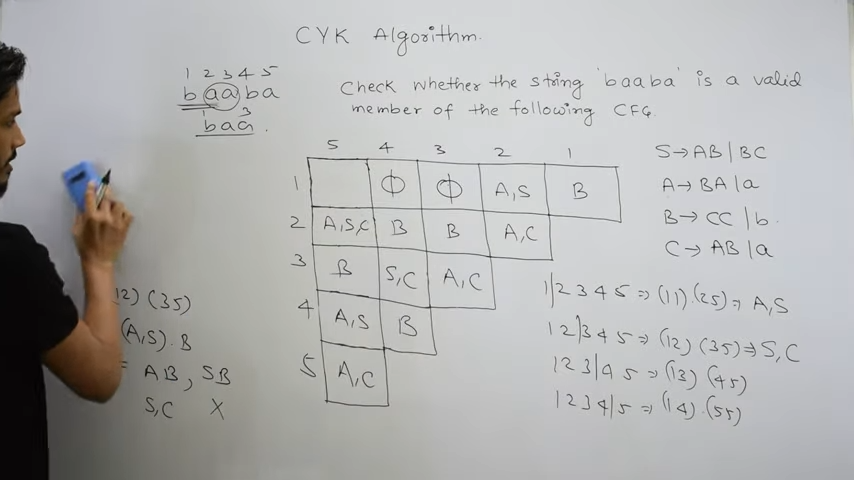 CYK Algorithm.
1 2 3 4 5
baaba
1 3
baa.
Check whether the string 'baaba' is a valid
member of the following CFG.
5 4 3 2 1
1 ϕ ϕ A,S B
2 A,S,C B B A,C
3 B S,C A,C
4 A,S B
5 A,C
S→AB|BC
A→BA|a
B→CC|b
C→AB|a
1|2 3 4 5 ⇒ (11).(25) ⇒ A,S
1 2|3 4 5 ⇒ (12) (35) ⇒ S,C
1 2 3|4 5 ⇒ (13) (45)
1 2 3 4|5 ⇒ (14).(55)
12) (35)
(A,S).B
= AB, SB
S,C X